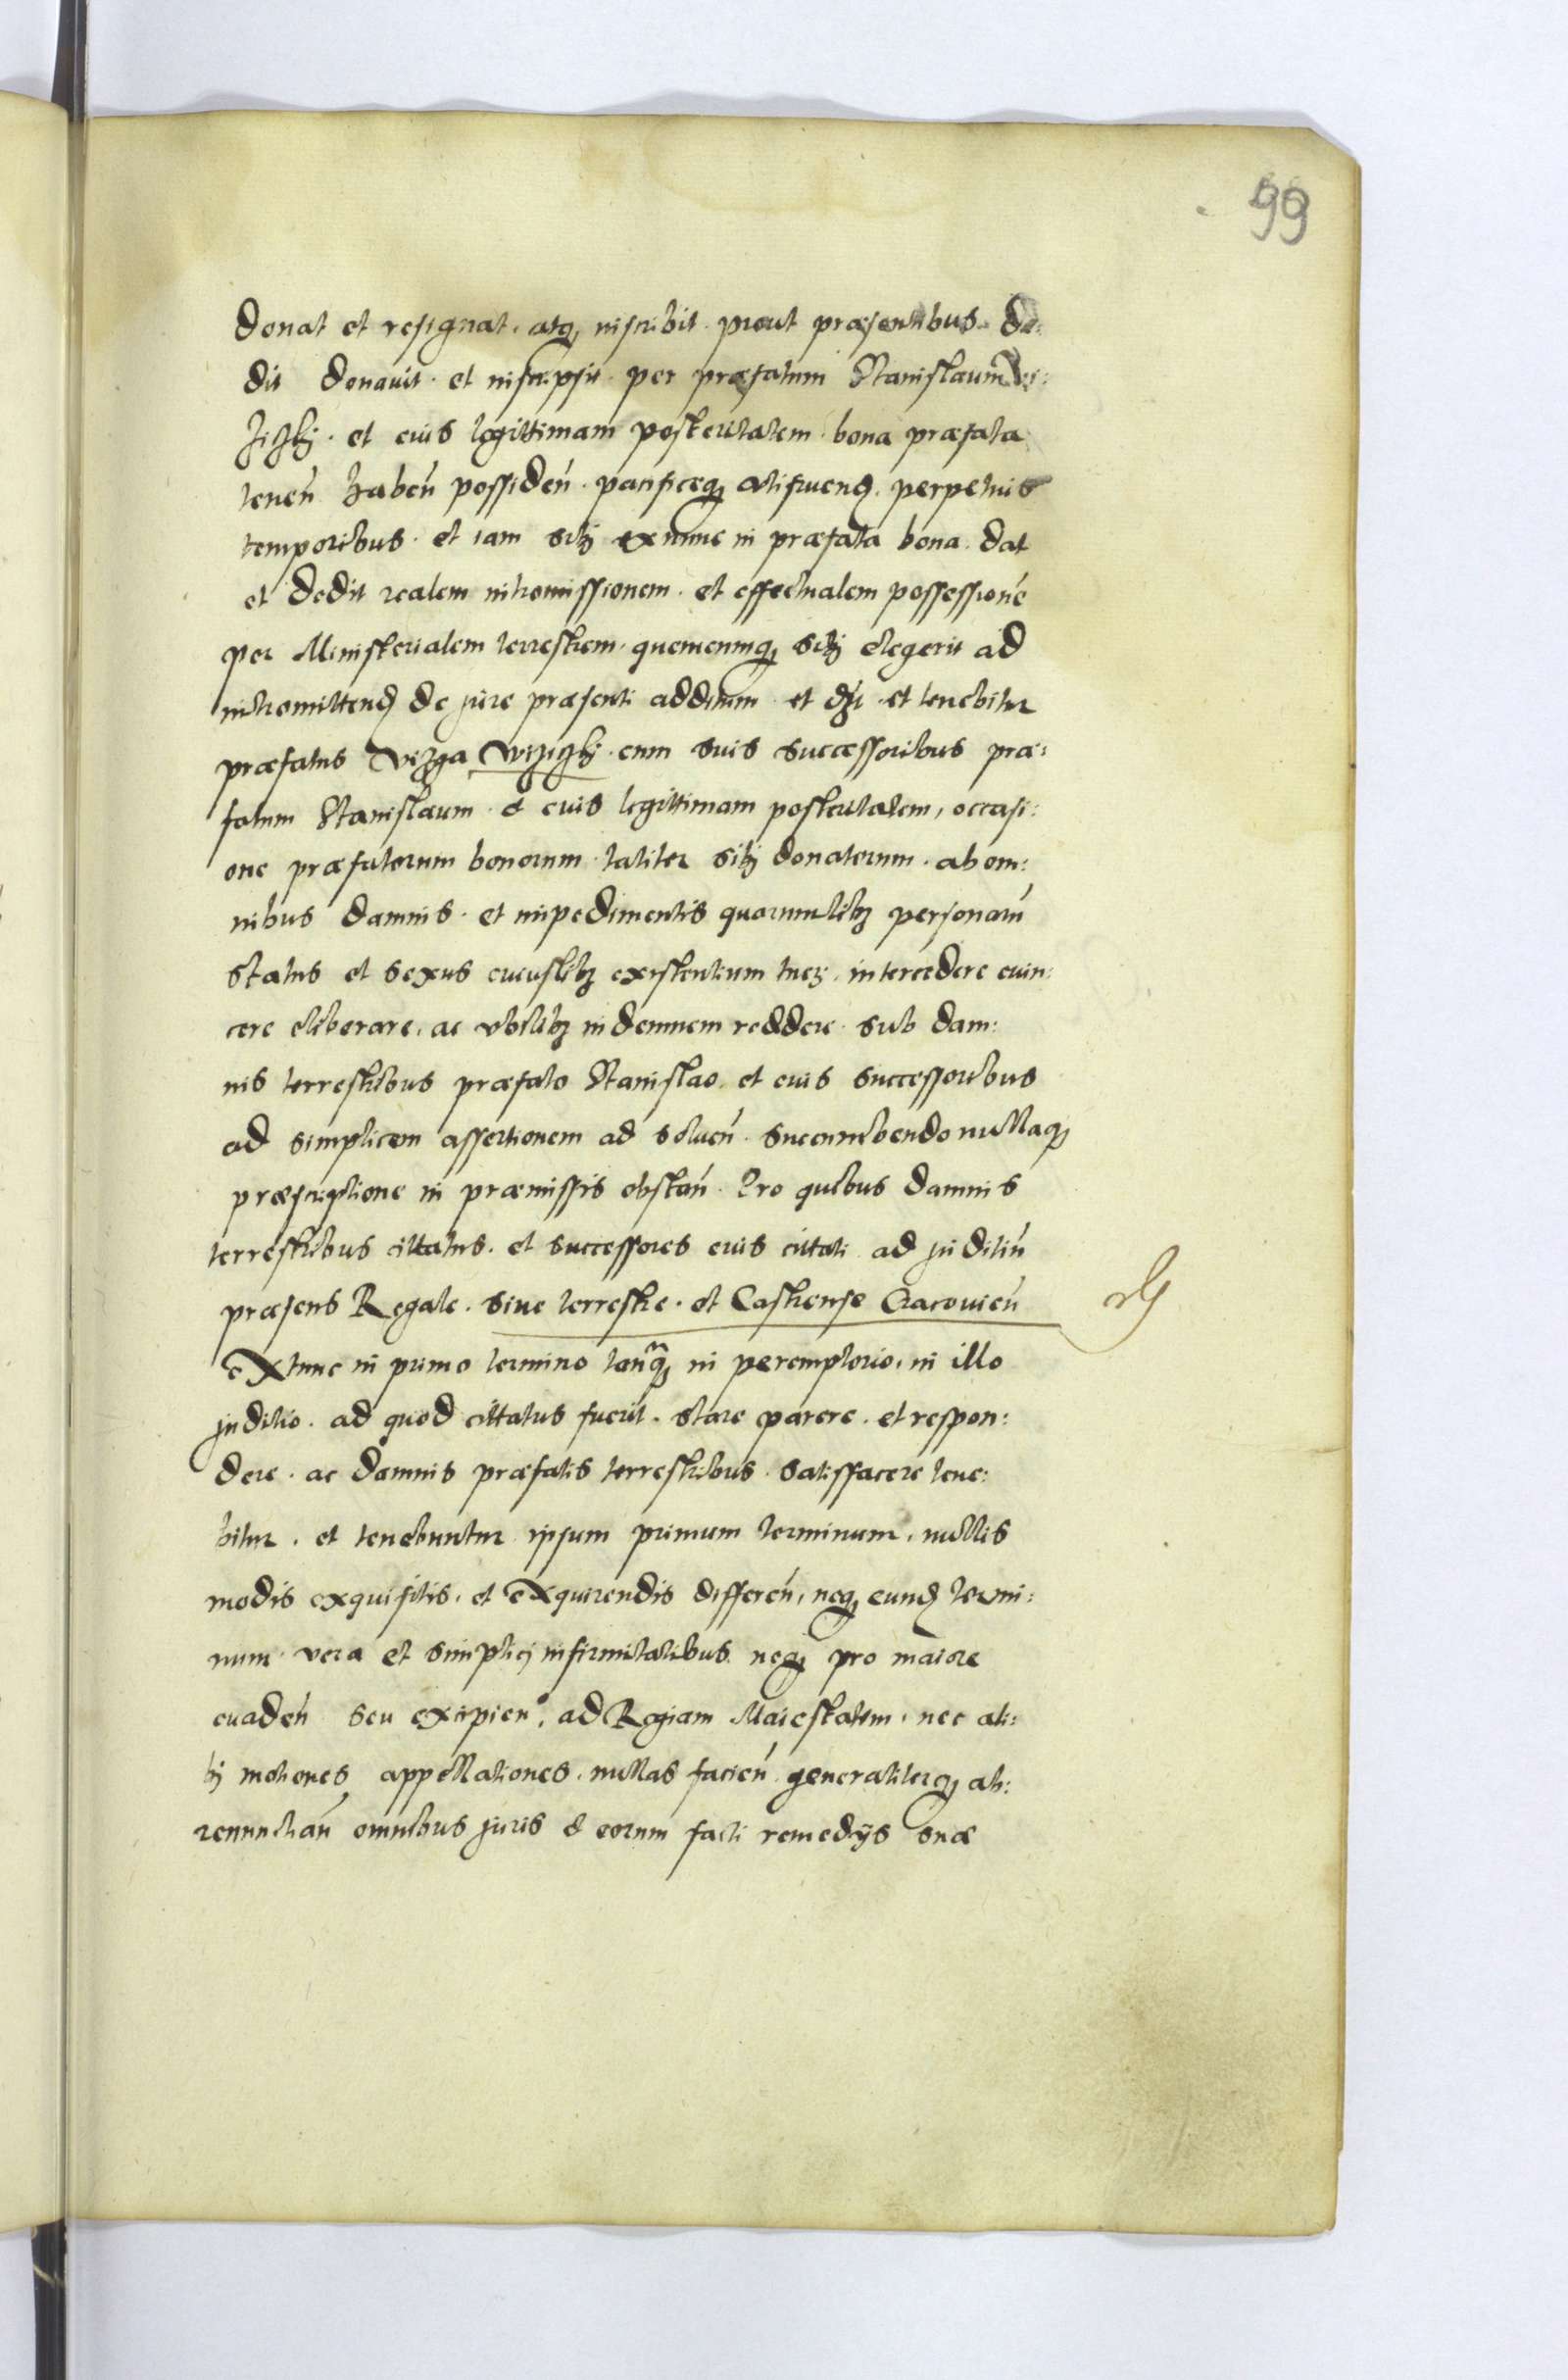 99
donat et resignat. atq₃ inscribit. prout præsentibus. de:
dit donauit. et inscripsit. per præfatum Stanislaum Vi:
zizkj. et euis legittimam posteritatem. bona præfata
tenen̄ haben̄ possiden̄. pacificeq₃ utifruend. perpetuis
temporibus. et iam sibj ex nunc in præfata bona. dat
et dedit realem intromissionem. et effectualem possessionē
per Ministerialem terrestrem. quemcunq₃ sibj elegerit ad
intromittend de jure præsenti additum et et tenebitur
præfatus Vizga Wizizkj. cum suis successoribus præ:
fatum Stanislaum. & euis legittimam posteritatem, occasi:
one præfatorum bonorum. taliter sibj donatorum. ab om:
nibus damnis. et impedimentis quorumlib₃ personarū
status et sexus cuiuslib₃ existentium tuerj. intercedere euin:
cere eliberare, ac vbilib₃ indemnem reddere. sub dam:
nis terrestribus præfato Stanislao. et euis successoribus
ad simplicem assertionem ad soluen̄. succumbendo nullaq₃
præscriptione in præmissis obstan̄. Pro quibus damnis
terrestribus cittatus. et successores euis cittati ad juditiū
præsens Regale. siue terrestre. et Castrense Cracouien̄
extunc in primo termino tanq̄₃ in peremptorio, in illo
juditio. ad quod cittatus fuerit. stare parere. et respon:
dere. ac damnis præfatis terrestribus. satisfacere tene:
bitur. et tenebuntur ipsum primum terminum, nullis
modis exquisitis, et exquirendis differen̄, neq₃ eund termi:
num vera et simplicj infirmitatibus neq₃ pro maiore
euaden̄ seu excipien̄. ad Regiam Maiestatem. nec ali:
bj motiones appellationes. nullas facien̄ generaliterq₃ ab:
renuntian̄ omnibus juris & eorum facti remedijs suæ